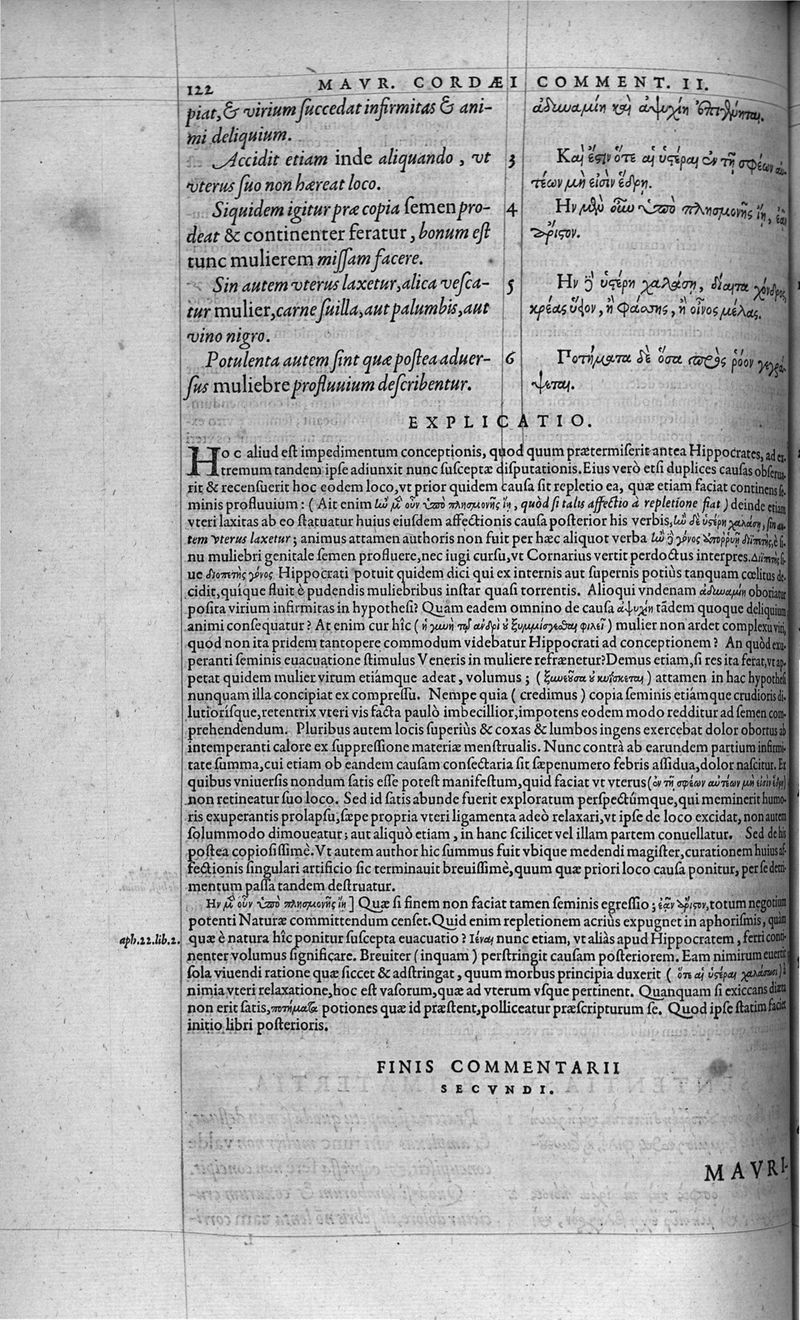 122 MAVR. CORDÆI COMMENT. II.
piat, & virium succedat infirmitas & ani-
mi deliquium.
Accidit etiam inde aliquando, vt
vterus suo non hæreat loco.
Siquidem igitur præ copia semen pro-
deat & continenter feratur, bonum est
tunc mulierem missam facere.
Sin autem vterus laxetur, alica vesca-
tur mulier, carne suilla, aut palumbis, aut
vino nigro.
Potulenta autem sint quæ postea aduer-
sus muliebre profluuium describentur.
ἀδυναμίη καὶ ἀψυχίη
3 Καὶ ἔςιν ὅτε αἱ ὑςέραι ἐν τῇ σφέων αὐ-
τέων μὴ εἰσὶν ἕδρῃ.
4 Ην μὲν οὖν ὑπὸ πλησμονῆς ἴῃ, ἐᾷν
ἄριςον.
5 Ην ὃ ὑςέρη χαλάσῃ, δίαιτα χόνδρος,
κρέας ὕειον, ἢ φάσσης, ἢ οἶνος μέλας.
6 Ποτήματα δὲ ὅσα πρὸς ῥόον γεγρά-
ψεται.
EXPLICATIO.
Hoc aliud est impedimentum conceptionis, quod quum prætermiserit antea Hippocrates, ad ex-
tremum tandem ipse adiunxit nunc susceptæ disputationis. Eius verò etsi duplices causas obserua-
rit & recensuerit hoc eodem loco, vt prior quidem causa sit repletio ea, quæ etiam faciat continens se-
minis profluuium: (Ait enim ἢν μὲν οὖν ὑπὸ πλησμονῆς ἴῃ, quòd si talis affectio à repletione fiat) deinde etiam
vteri laxitas ab eo statuatur huius eiusdem affectionis causa posterior his verbis, ἢν δὲ ὑςέρη χαλάσῃ, sin au-
tem vterus laxetur; animus attamen authoris non fuit per hæc aliquot verba
nu muliebri genitale semen profluere, nec iugi cursu, vt Cornarius vertit perdoctus interpres. Διϊπετὴς si-
ue διοπετὴς γόνος Hippocrati potuit quidem dici qui ex internis aut supernis potiùs tanquam cœlitus de-
cidit, quíque fluit è pudendis muliebribus instar quasi torrentis. Alioqui vndenam ἀδυναμίη oboriatur
posita virium infirmitas in hypothesi? Quàm eadem omnino de causa ἀψυχίη tãdem quoque deliquium
animi consequatur? At enim cur hîc (ἡ γυνὴ τῷ ἀνδρὶ ȣ̓ ξυμμίσγεσθαι φιλεῖ) mulier non ardet complexu viri,
quod non ita pridem tantopere commodum videbatur Hippocrati ad conceptionem? An quòd exu-
peranti seminis euacuatione stimulus Veneris in muliere refrænetur? Demus etiam, si res ita ferat, vt ap-
petat quidem mulier virum etiámque adeat, volumus; (ξυνεῦσα ȣ̓ κυΐσκεται) attamen in hac hypothesi
nunquam illa concipiat ex compressu. Nempe quia (credimus) copia seminis etiámque crudioris di-
lutiorísque, retentrix vteri vis facta paulò imbecillior, impotens eodem modo redditur ad semen com-
prehendendum. Pluribus autem locis superiùs & coxas & lumbos ingens exercebat dolor obortus ab
intemperanti calore ex suppressione materiæ menstrualis. Nunc contrà ab earundem partium infirmi-
tate summa, cui etiam ob eandem causam consectaria sit sæpenumero febris assidua, dolor nascitur. Ex
quibus vniuersis nondum satis esse potest manifestum, quid faciat vt vterus (ἐν τῇ σφέων αὐτέων μὴ εἰσὶν ἕδρῃ)
non retineatur suo loco. Sed id satis abunde fuerit exploratum perspectúmque, qui meminerit humo-
ris exuperantis prolapsu, sæpe propria vteri ligamenta adeò relaxari, vt ipse de loco excidat, non autem
solummodo dimoueatur; aut aliquò etiam, in hanc scilicet vel illam partem conuellatur. Sed de his
postea copiosissimè. Vt autem author hic summus fuit vbique medendi magister, curationem huius af-
fectionis singulari artificio sic terminauit breuissimè, quum quæ priori loco causa ponitur, per se detri-
mentum passa tandem destruatur.
Ην μὲν οὖν ὑπὸ πλησμονῆς ἴῃ] Quæ si finem non faciat tamen seminis egressio; ἐᾷν ἄριςον, totum negotium
potenti Naturæ committendum censet. Quid enim repletionem acriùs expugnet in aphorismis, quàm
aph. 22. lib. 2. quæ è natura hîc ponitur suscepta euacuatio? Ἰέναι nunc etiam, vt aliàs apud Hippocratem, ferri conti-
nenter volumus significare. Breuiter (inquam) perstringit causam posteriorem. Eam nimirum euertit
sola viuendi ratione quæ siccet & adstringat, quum morbus principia duxerit (ὅτι αἱ ὑςέραι χαλάσωσι) à
nimia vteri relaxatione, hoc est vasorum, quæ ad vterum vsque pertinent. Quanquam si exiccans diæta
non erit satis, ποτήματα potiones quæ id præstent, polliceatur præscripturum se. Quod ipse statim faciat
initio libri posterioris.
FINIS COMMENTARII
SECVNDI.
MAVRI-